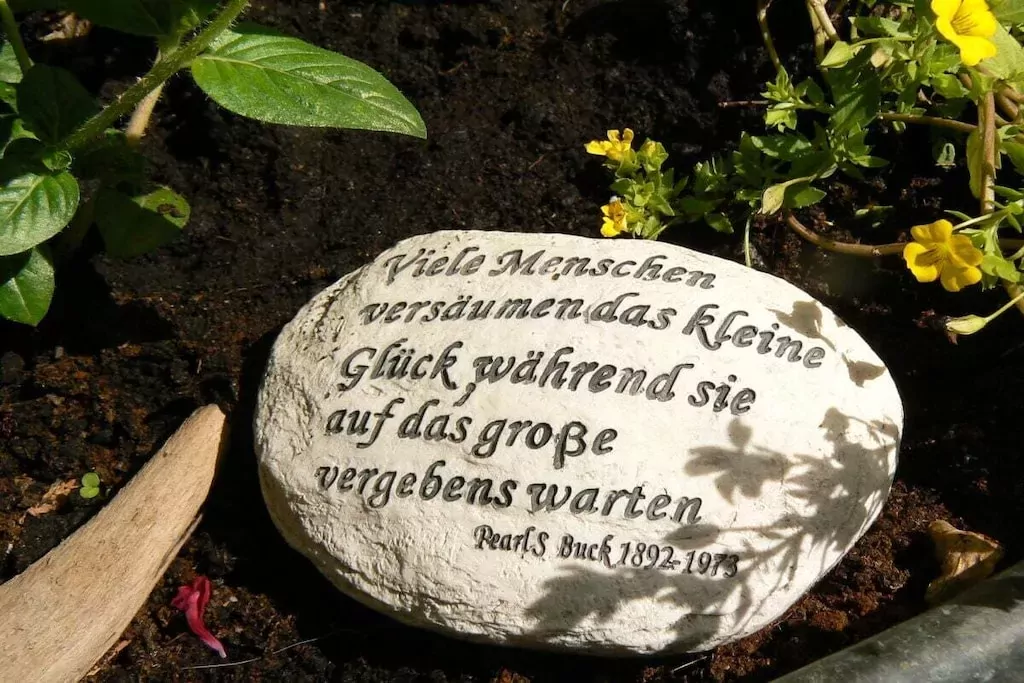 Viele Menschen
versäumen das kleine
Glück, während sie
auf das große
vergebens warten
Pearl S Buck 1892-1973